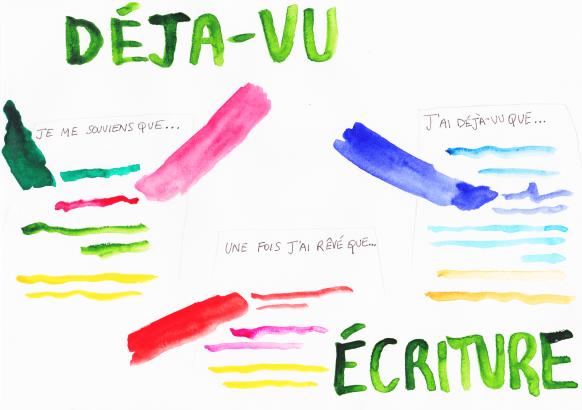 DÉJA-VU
JE ME SOUVIENS QUE...
J'AI DÉJÀ-VU QUE...
UNE FOIS J'AI RÊVÉ QUE...
ÉCRITURE